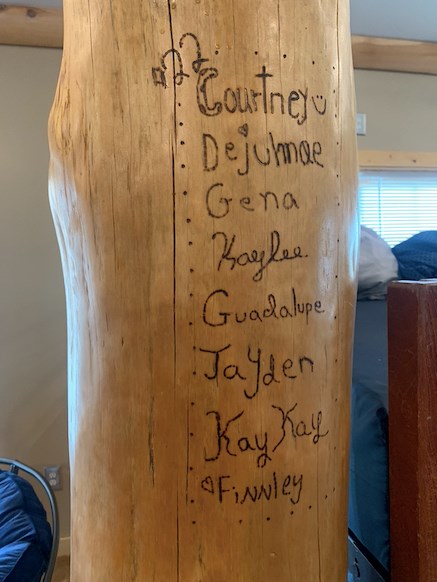 Courtney
Dejuhnae
Gena
Kaylee
Guadalupe
Jayden
Kay Kay
Finnley